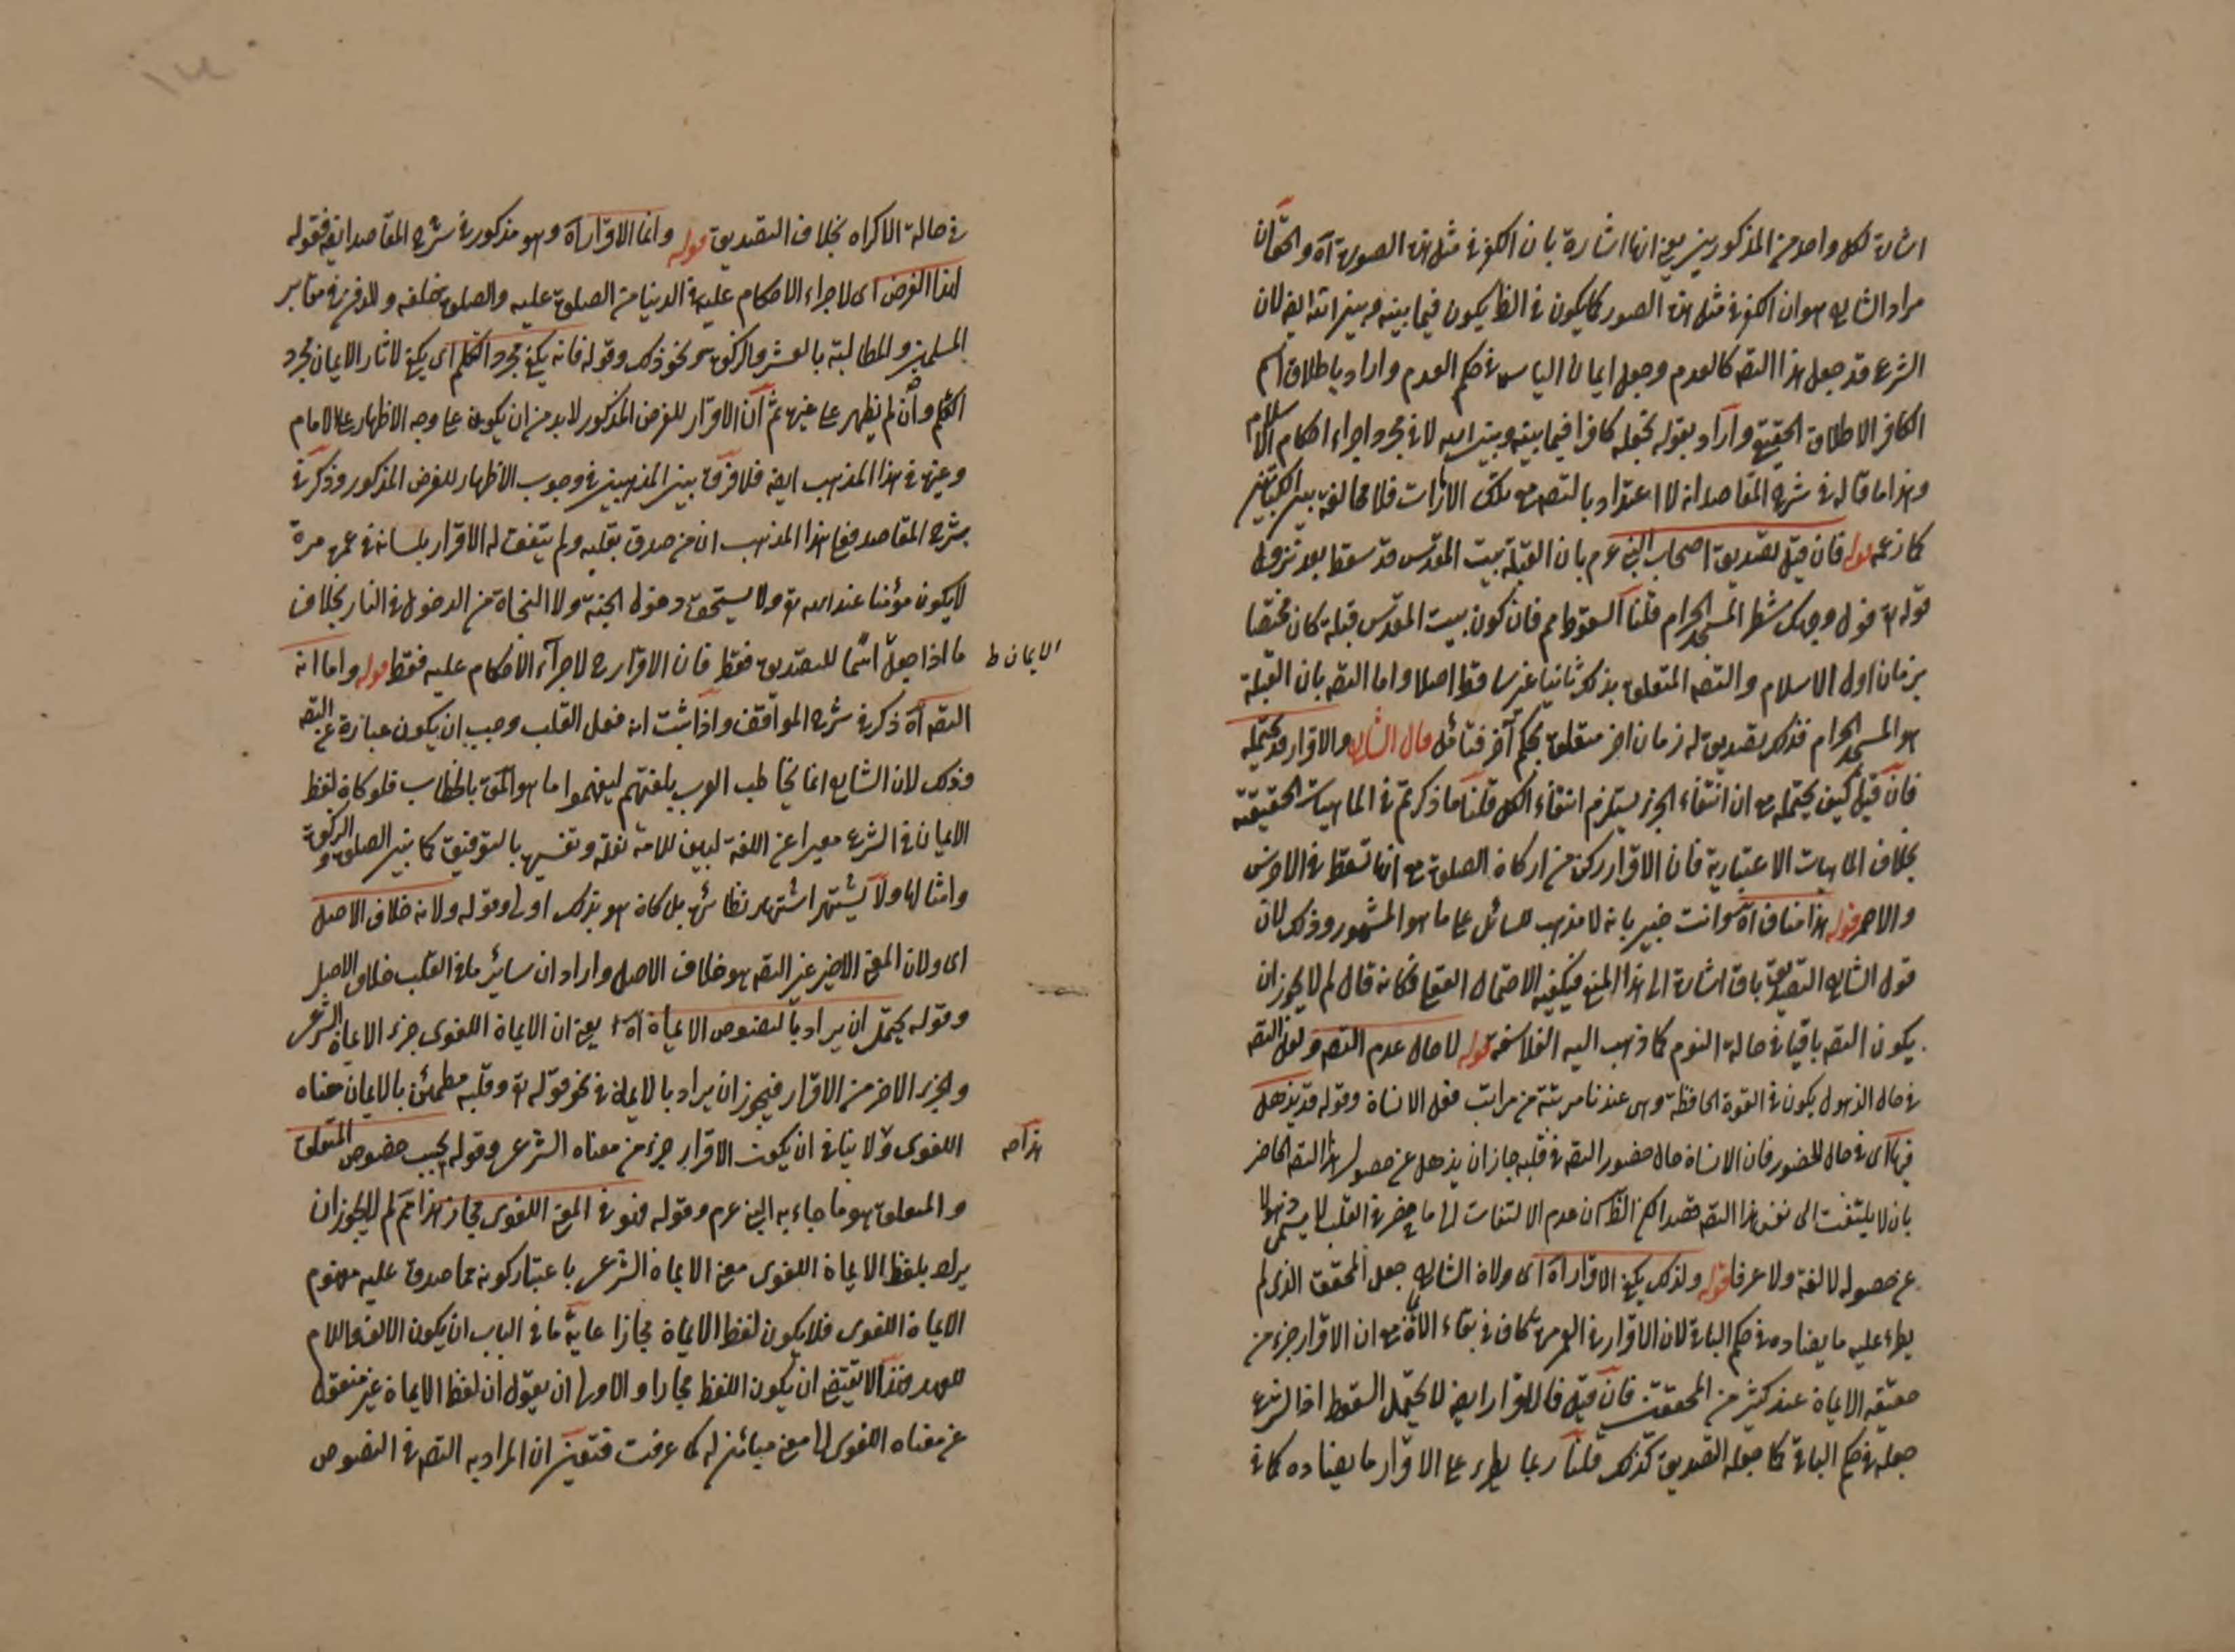 اشارة لكل واحد من المذكورين يعني انها اشارة بان الكفر في مثل هذه الصورة آه والحق ان
مراد الشارح هو ان الكفر في مثل هذه الصور كما يكون في الظ يكون فيما بينه وبين الله ايضا لان
الشرع قد جعل هذا التصـ كالعدم وجعل ايمان الياس في حكم العدم واراد باطلاق اسم
الكافر الاطلاق الحقيقي واراد بقوله نجعله كافرا فيما بينه وبين الله لا في مجرد اجراء احكام الاسلام
وهذا ما قاله في شرح المقاصد انه لا اعتداد بالتصـ مع تلك الامارات فلا مخالفة بين الكتابين
كما زعم قوله فان قيل تصديق اصحاب النبي عم بان القبلة بيت المقدس قد سقط بعد نزول
قوله تع فول وجهك شطر المسجد الحرام قلنا السقوط مم فان كون بيت المقدس قبلة كان مختصا
بزمان اول الاسلام والتصـ المتعلق بذلك ثابتا غير ساقط اصلا واما التصـ بان القبلة
هو المسجد الحرام فذلك تصديق له زمان اخر متعلق بحكم آخر فتأمل قال الشارح والاقرار قد يحتمله
فان قيل كيف يحتمله مع ان انتفاء الجزء يستلزم انتفاء الكل قلنا ما ذكرتم في الماهيات الحقيقية
بخلاف الماهيات الاعتبارية فان الاقرار ركن من اركان الصلوة مع انها تسقط في الاخرس
والاصم قوله هذا مناف آه وانت خبير بانه لا مذهب للسائل على ما هو المشهور وذلك لان
قول الشارح التصديق باق اشارة الى هذا المنع فيكفيه الاحتمال العقلي فكانه قال لم لا يجوز ان
يكون التصـ باقيا في حالة النوم كما ذهب اليه الفلاسفة قوله لا حال عدم التصـ ولعل التصـ
في حال الذهول يكون في القوة الحافظة وهي عندنا مرتبة من مراتب فعل الانسان وقوله قد يذهل
فيها اى في حال الحضور فان الانسان حال حضور التصـ في قلبه جاز ان يذهل عن حصول هذا التصـ الحاضر
بان لا يلتفت الى نفس هذا التصـ قصدا لكن الظ ان عدم الالتفات الى ما حضر في القلب لا يسمى ذهولا
عن حصوله لا لغة ولا عرفا قوله ولذلك يكفي الاقرار آه اى ولان الشارح جعل المحقق الذى لم
يطرء عليه ما يضاده في حكم الباقي لان الاقرار في العمر مرة كاف في بقاء الايمان مع ان الاقرار جزء من
حقيقة الايمان عند كثير من المحققين فان قيل فالاقرار ايضا لا يحتمل السقوط اذ الشرع
جعله في حكم الباقي كما جعله التصديق كذلك قلنا ربما يطرء على الاقرار ما يضاده كما في
في حالة الاكراه بخلاف التصديق قوله وانما الاقرار آه وهو مذكور في شرح المقاصد ايضا فقوله
لهذا الغرض اى لاجراء الاحكام عليه في الدنيا من الصلوة عليه والصلوة خلفه والدفن في مقابر
المسلمين والمطالبة بالعشر والزكوة ونحو ذلك وقوله فانه يكفي مجرد التكلم اى يكفي لاثار الايمان مجرد
التكلم وان لم يظهر على غيره ثم ان الاقرار للغرض المذكور لا بد من ان يكون على وجه الاظهار على الامام
وغيره في هذا المذهب ايضا فلا فرق بين المذهبين في وجوب الاظهار للغرض المذكور وذكر في
شرح المقاصد فعلى هذا المذهب ان من صدق بقلبه ولم يتفق له الاقرار بلسانه في عمره مرة
لا يكون مؤمنا عند الله تع ولا يستحق دخول الجنة ولا النجاة من الدخول في النار بخلاف
ما اذا جعل اسما للتصديق فقط فان الاقرار ح لاجراء الاحكام عليه فقط قوله واما انه
الايمان ط
التصـ آه ذكر في شرح المواقف واذا ثبت انه فعل القلب وجب ان يكون عبارة عن التصـ
وذلك لان الشارع انما يخاطب العرب بلغتهم ليفهموا ما هو المق بالخطاب فلو كان لفظ
الايمان في الشرع مغيرا عن اللغة لبين للامة نقله وتفسيره بالتوقيف كما بين الصلوة والزكوة
وامثالها ولا يشتهر اشتهار نظائره بل كان هو بذلك اولى وقوله ولانه خلاف الاصل
اى ولان المعنى الاخير غير التصـ هو خلاف الاصل واراد ان سائر ما في القلب خلاف الاصل
وقوله يحتمل ان يراد بالنصوص الايمان آه يعني ان الايمان اللغوى جزء الايمان الشرعى
والجزء الاخر من الاقرار فيجوز ان يراد بالايمان في نحو قوله تع وقلبه مطمئن بالايمان معناه
اللغوى ولا ينافي ان يكون الاقرار جزء من معناه الشرعى وقوله بحسب خصوص المتعلق
هذا صح
والمتعلق هو ما جاء به النبي عم وقوله فهو في المعنى اللغوى مجاز هذا مم لم لا يجوز ان
يراد بلفظ الايمان اللغوى معنى الايمان الشرعى باعتبار كونه مما صدق عليه مفهوم
الايمان اللغوى فلا يكون لفظ الايمان مجازا غاية ما في الباب ان يكون الالف واللام
للعهد وهذا لا يقتضي ان يكون اللفظ مجازا والاولى ان يقول ان لفظ الايمان غير منقول
عن معناه اللغوى الى معنى مباين له كما عرفت فتعين ان المراد به التصـ في النصوص